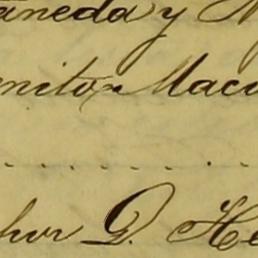 aneda y
enito Mac
hor D. He